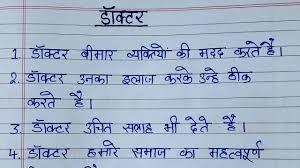 डॉक्टर
1. डॉक्टर बीमार व्यक्तियो की मदद करते हैं।
2. डॉक्टर उनका इलाज करके उन्हे ठीक
करते हैं।
3. डॉक्टर उचित सलाह भी देते हैं।
4. डॉक्टर हमारे समाज का महत्वपूर्ण